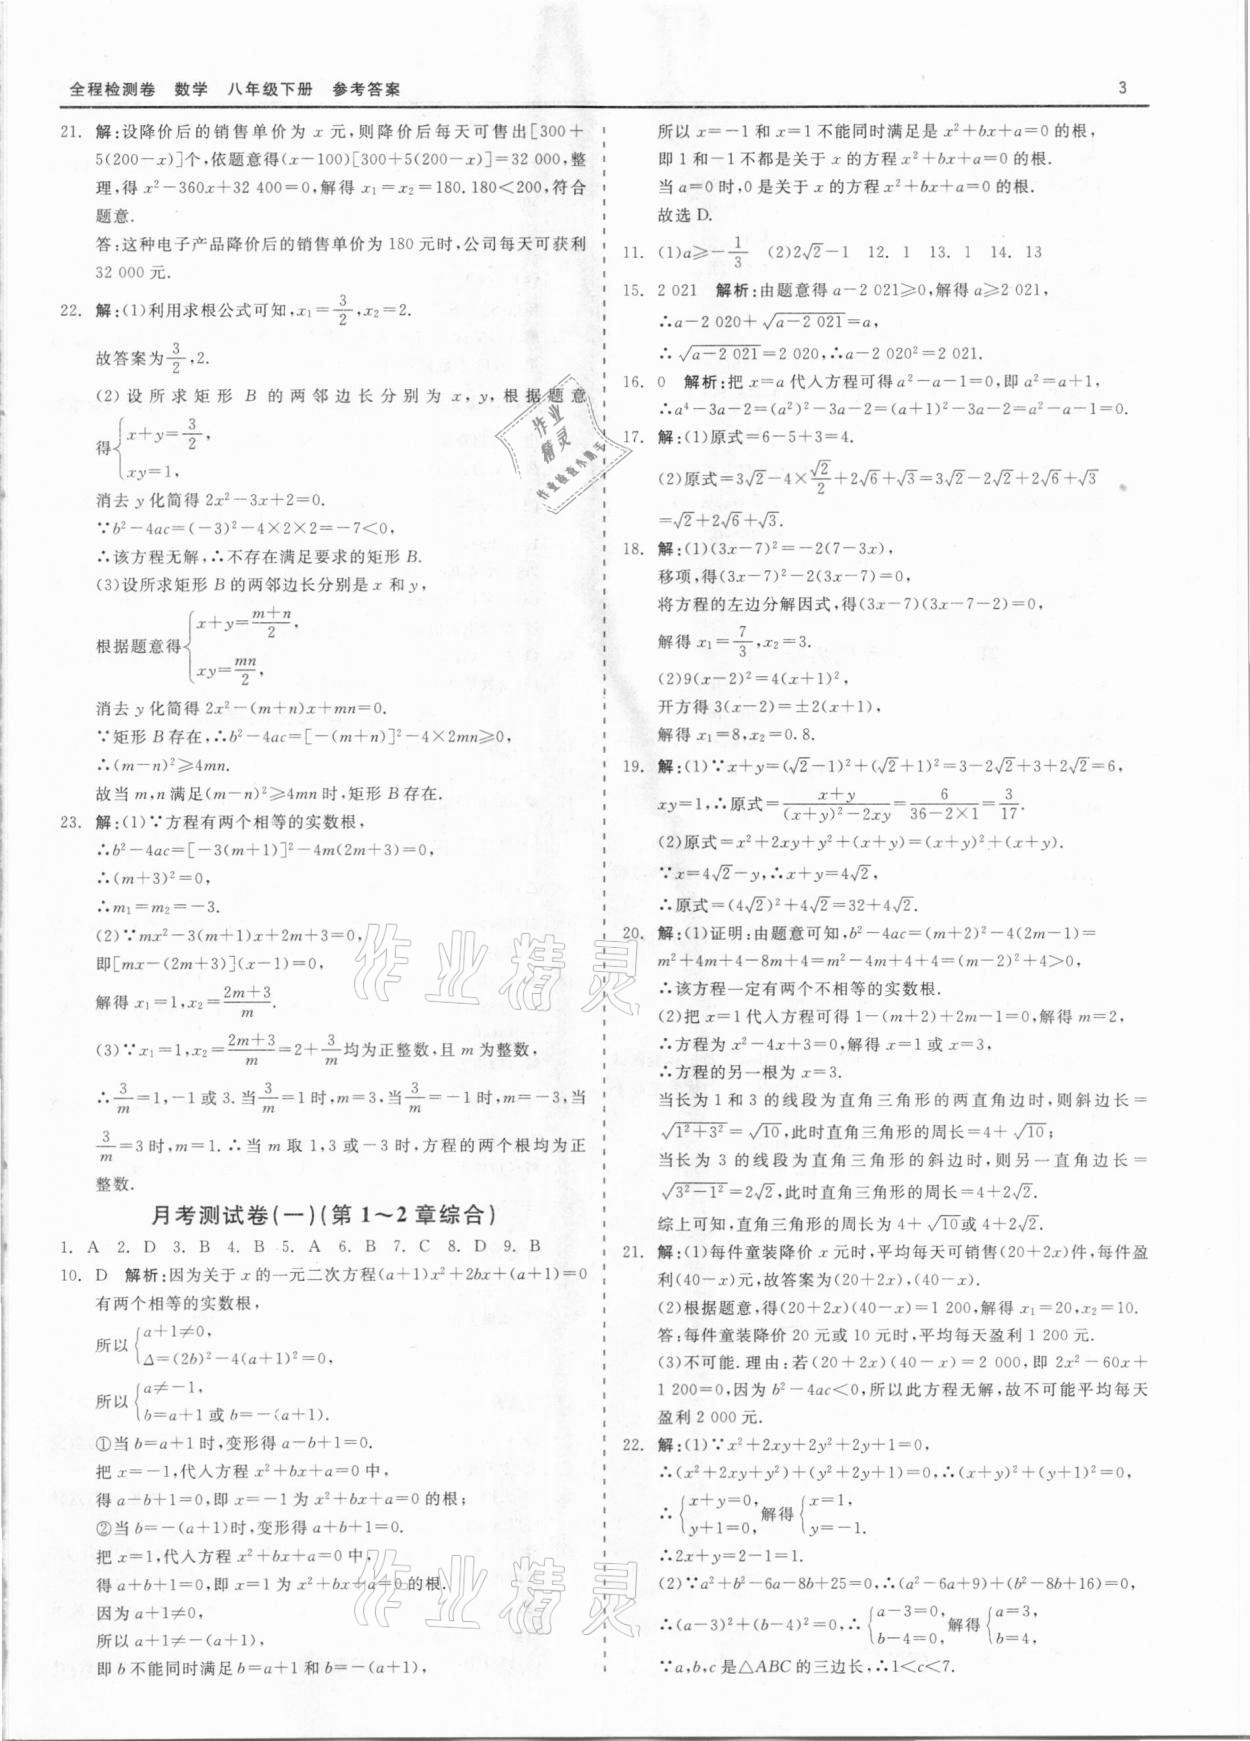 全程检测卷 数学 八年级下册 参考答案 3
21. 解:设降价后的销售单价为 x 元,则降价后每天可售出[300+
5(200-x)]个,依题意得(x-100)[300+5(200-x)]=32 000,整
理,得 x²-360x+32 400=0,解得 x₁=x₂=180. 180<200,符合
题意.
答:这种电子产品降价后的销售单价为 180 元时,公司每天可获利
32 000 元.
22. 解:(1)利用求根公式可知,x₁=3/2,x₂=2.
故答案为3/2,2.
(2)设所求矩形 B 的两邻边长分别为 x,y,根据题意
得{x+y=3/2,
xy=1,
消去 y 化简得 2x²-3x+2=0.
∵b²-4ac=(-3)²-4×2×2=-7<0,
∴该方程无解,∴不存在满足要求的矩形 B.
(3)设所求矩形 B 的两邻边长分别是 x 和 y,
根据题意得{x+y=(m+n)/2,
xy=mn/2,
消去 y 化简得 2x²-(m+n)x+mn=0.
∵矩形 B 存在,∴b²-4ac=[-(m+n)]²-4×2mn≥0,
∴(m-n)²≥4mn.
故当 m,n 满足(m-n)²≥4mn 时,矩形 B 存在.
23. 解:(1)∵方程有两个相等的实数根,
∴b²-4ac=[-3(m+1)]²-4m(2m+3)=0,
∴(m+3)²=0,
∴m₁=m₂=-3.
(2)∵mx²-3(m+1)x+2m+3=0,
即[mx-(2m+3)](x-1)=0,
解得 x₁=1,x₂=(2m+3)/m.
(3)∵x₁=1,x₂=(2m+3)/m=2+3/m均为正整数,且 m 为整数,
∴3/m=1,-1 或 3.当3/m=1 时,m=3,当3/m=-1 时,m=-3,当
3/m=3时,m=1.∴当 m 取 1,3 或-3 时,方程的两个根均为正
整数.
月考测试卷(一)(第 1～2 章综合)
1. A 2. D 3. B 4. B 5. A 6. B 7. C 8. D 9. B
10. D 解析:因为关于 x 的一元二次方程(a+1)x²+2bx+(a+1)=0
有两个相等的实数根,
所以{a+1≠0,
Δ=(2b)²-4(a+1)²=0,
所以{a≠-1,
b=a+1 或 b=-(a+1).
①当 b=a+1 时,变形得 a-b+1=0.
把 x=-1,代入方程 x²+bx+a=0 中,
得 a-b+1=0,即 x=-1 为 x²+bx+a=0 的根;
②当 b=-(a+1)时,变形得 a+b+1=0.
把 x=1,代入方程 x²+bx+a=0 中,
得 a+b+1=0,即 x=1 为 x²+bx+a=0 的根.
因为 a+1≠0,
所以 a+1≠-(a+1),
即 b 不能同时满足 b=a+1 和 b=-(a+1),
所以 x=-1 和 x=1 不能同时满足是 x²+bx+a=0 的根,
即 1 和-1 不都是关于 x 的方程 x²+bx+a=0 的根.
当 a=0 时,0 是关于 x 的方程 x²+bx+a=0 的根.
故选 D.
11. (1)a≥-1/3 (2)2√2-1 12. 1 13. 1 14. 13
15. 2 021 解析:由题意得 a-2 021≥0,解得 a≥2 021,
∴a-2 020+√(a-2 021)=a,
∴√(a-2 021)=2 020,∴a-2 020²=2 021.
16. 0 解析:把 x=a 代入方程可得 a²-a-1=0,即 a²=a+1,
∴a⁴-3a-2=(a²)²-3a-2=(a+1)²-3a-2=a²-a-1=0.
17. 解:(1)原式=6-5+3=4.
(2)原式=3√2-4×√2/2+2√6+√3=3√2-2√2+2√6+√3
=√2+2√6+√3.
18. 解:(1)(3x-7)²=-2(7-3x),
移项,得(3x-7)²-2(3x-7)=0,
将方程的左边分解因式,得(3x-7)(3x-7-2)=0,
解得 x₁=7/3,x₂=3.
(2)9(x-2)²=4(x+1)²,
开方得 3(x-2)=±2(x+1),
解得 x₁=8,x₂=0.8.
19. 解:(1)∵x+y=(√2-1)²+(√2+1)²=3-2√2+3+2√2=6,
xy=1,∴原式=(x+y)/((x+y)²-2xy)=6/(36-2×1)=3/17.
(2)原式=x²+2xy+y²+(x+y)=(x+y)²+(x+y).
∵x=4√2-y,∴x+y=4√2,
∴原式=(4√2)²+4√2=32+4√2.
20. 解:(1)证明:由题意可知,b²-4ac=(m+2)²-4(2m-1)=
m²+4m+4-8m+4=m²-4m+4+4=(m-2)²+4>0,
∴该方程一定有两个不相等的实数根.
(2)把 x=1 代入方程可得 1-(m+2)+2m-1=0,解得 m=2,
∴方程为 x²-4x+3=0,解得 x=1 或 x=3,
∴方程的另一根为 x=3.
当长为 1 和 3 的线段为直角三角形的两直角边时,则斜边长=
√(1²+3²)=√10,此时直角三角形的周长=4+√10;
当长为 3 的线段为直角三角形的斜边时,则另一直角边长=
√(3²-1²)=2√2,此时直角三角形的周长=4+2√2.
综上可知,直角三角形的周长为 4+√10或 4+2√2.
21. 解:(1)每件童装降价 x 元时,平均每天可销售(20+2x)件,每件盈
利(40-x)元,故答案为(20+2x),(40-x).
(2)根据题意,得(20+2x)(40-x)=1 200,解得 x₁=20,x₂=10.
答:每件童装降价 20 元或 10 元时,平均每天盈利 1 200 元.
(3)不可能.理由:若(20+2x)(40-x)=2 000,即 2x²-60x+
1 200=0,因为 b²-4ac<0,所以此方程无解,故不可能平均每天
盈利 2 000 元.
22. 解:(1)∵x²+2xy+2y²+2y+1=0,
∴(x²+2xy+y²)+(y²+2y+1)=0,∴(x+y)²+(y+1)²=0,
∴{x+y=0,
y+1=0,解得{x=1,
y=-1.
∴2x+y=2-1=1.
(2)∵a²+b²-6a-8b+25=0,∴(a²-6a+9)+(b²-8b+16)=0,
∴(a-3)²+(b-4)²=0,∴{a-3=0,
b-4=0,解得{a=3,
b=4,
∵a,b,c 是△ABC 的三边长,∴1<c<7.
作业
精灵
作业检查小助手
作业精灵
作业精灵